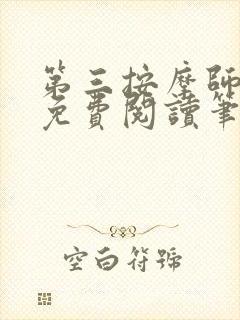 第三按摩師
免費閱讀筆
空白符號